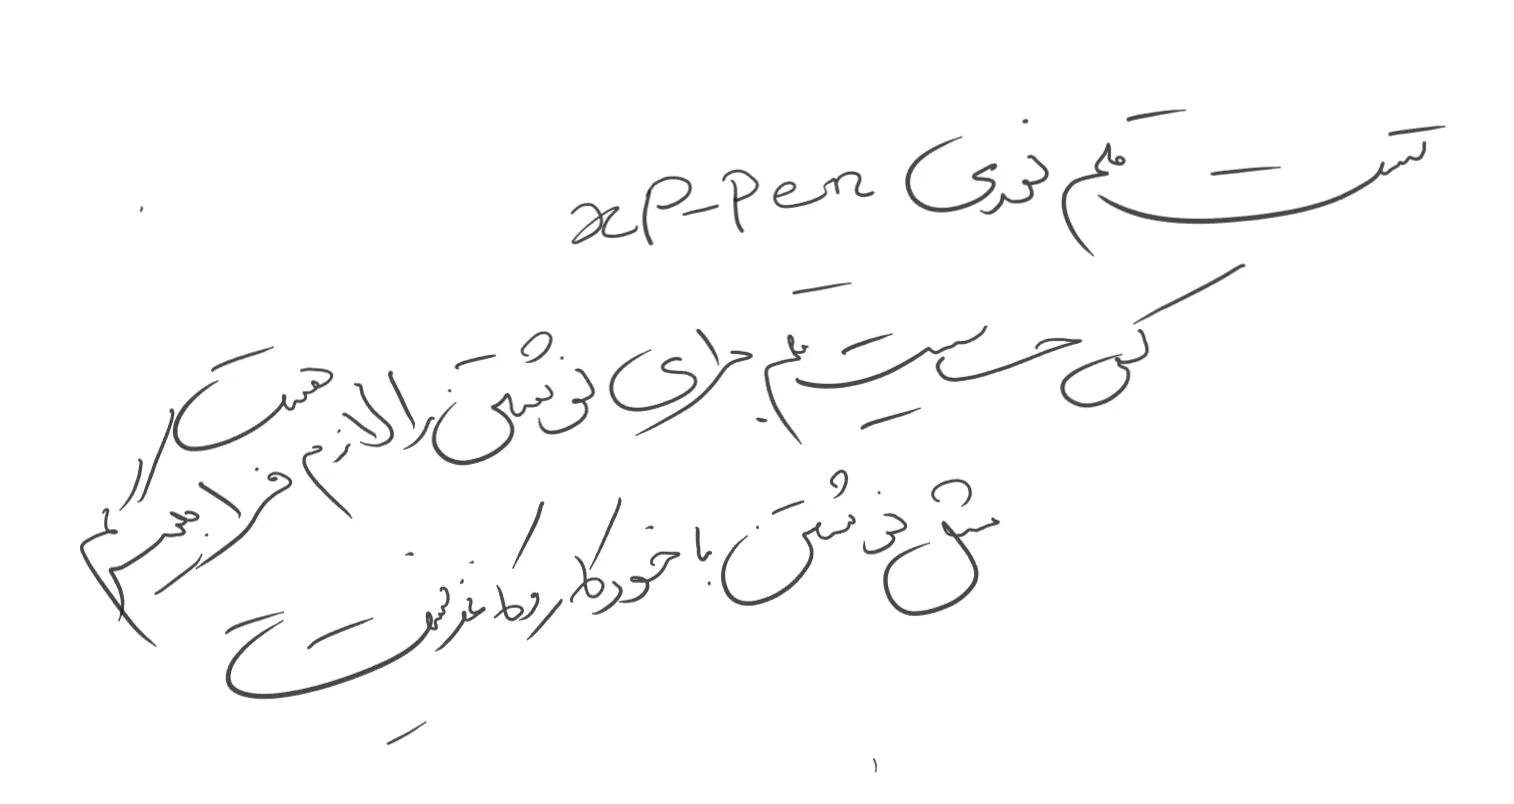 تست قلم نوری xp-pen
کمی حساسیت قلم برای نوشتن را لازم هست
فرا بگیریم
مثل نوشتن با خودکار و کاغذ نیست